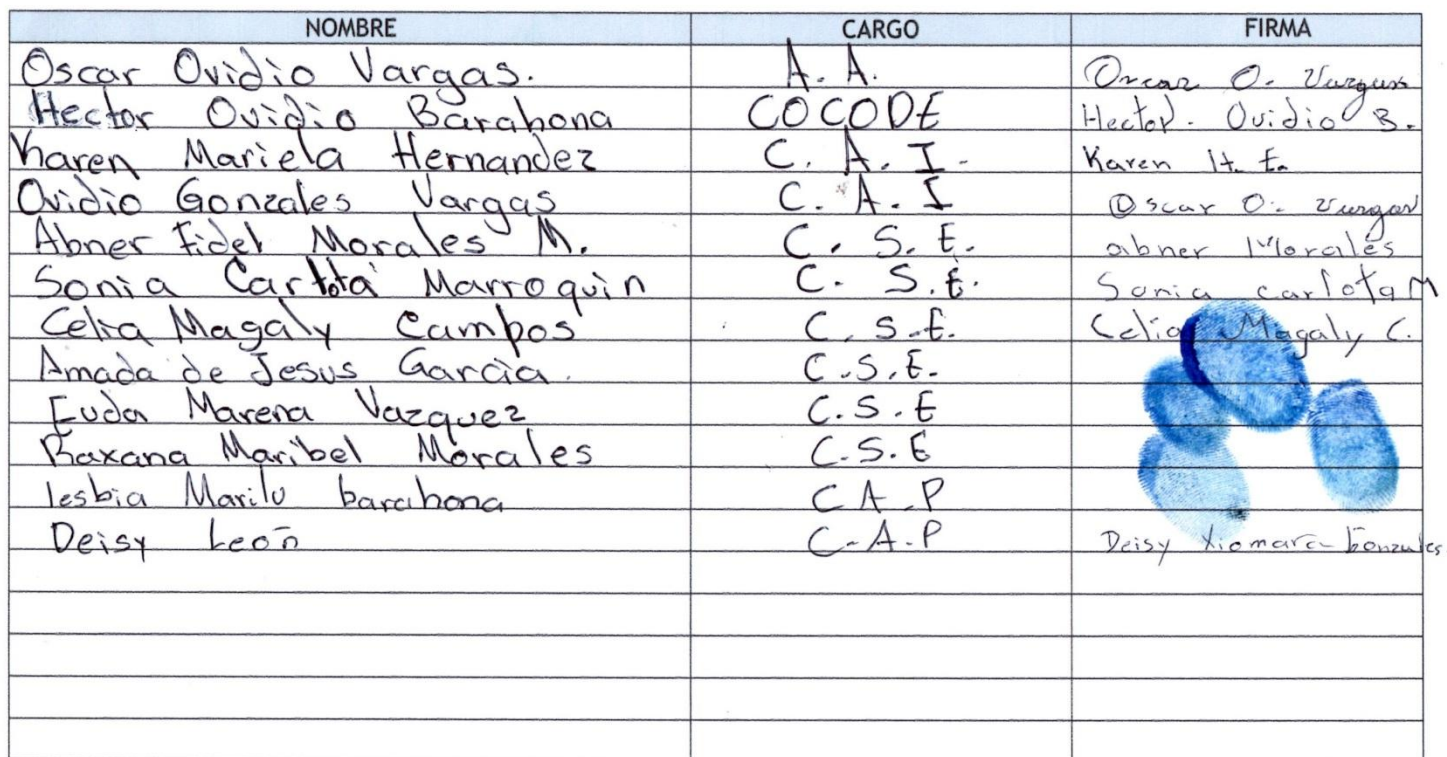 NOMBRE CARGO FIRMA
Oscar Ovidio Vargas. A. A. Oscar O. Vargas
Hector Ovidio Barahona COCODE Hector. Ovidio B.
Karen Mariela Hernandez C. A. I. Karen H. E.
Ovidio Gonzales Vargas C. A. I Oscar O. Vargas
Abner Fidel Morales M. C. S. E. abner Morales
Sonia Carlota Marroquin C. S. E. Sonia carlota M
Celia Magaly Campos C. S. E. Celia Magaly C.
Amada de Jesus Garcia. C.S.E.
Euda Marena Vazquez C.S.E
Raxana Maribel Morales C.S.E
lesbia Marilu barahona C A.P
Deisy León C-A.P Deisy Xiomara Gonzales